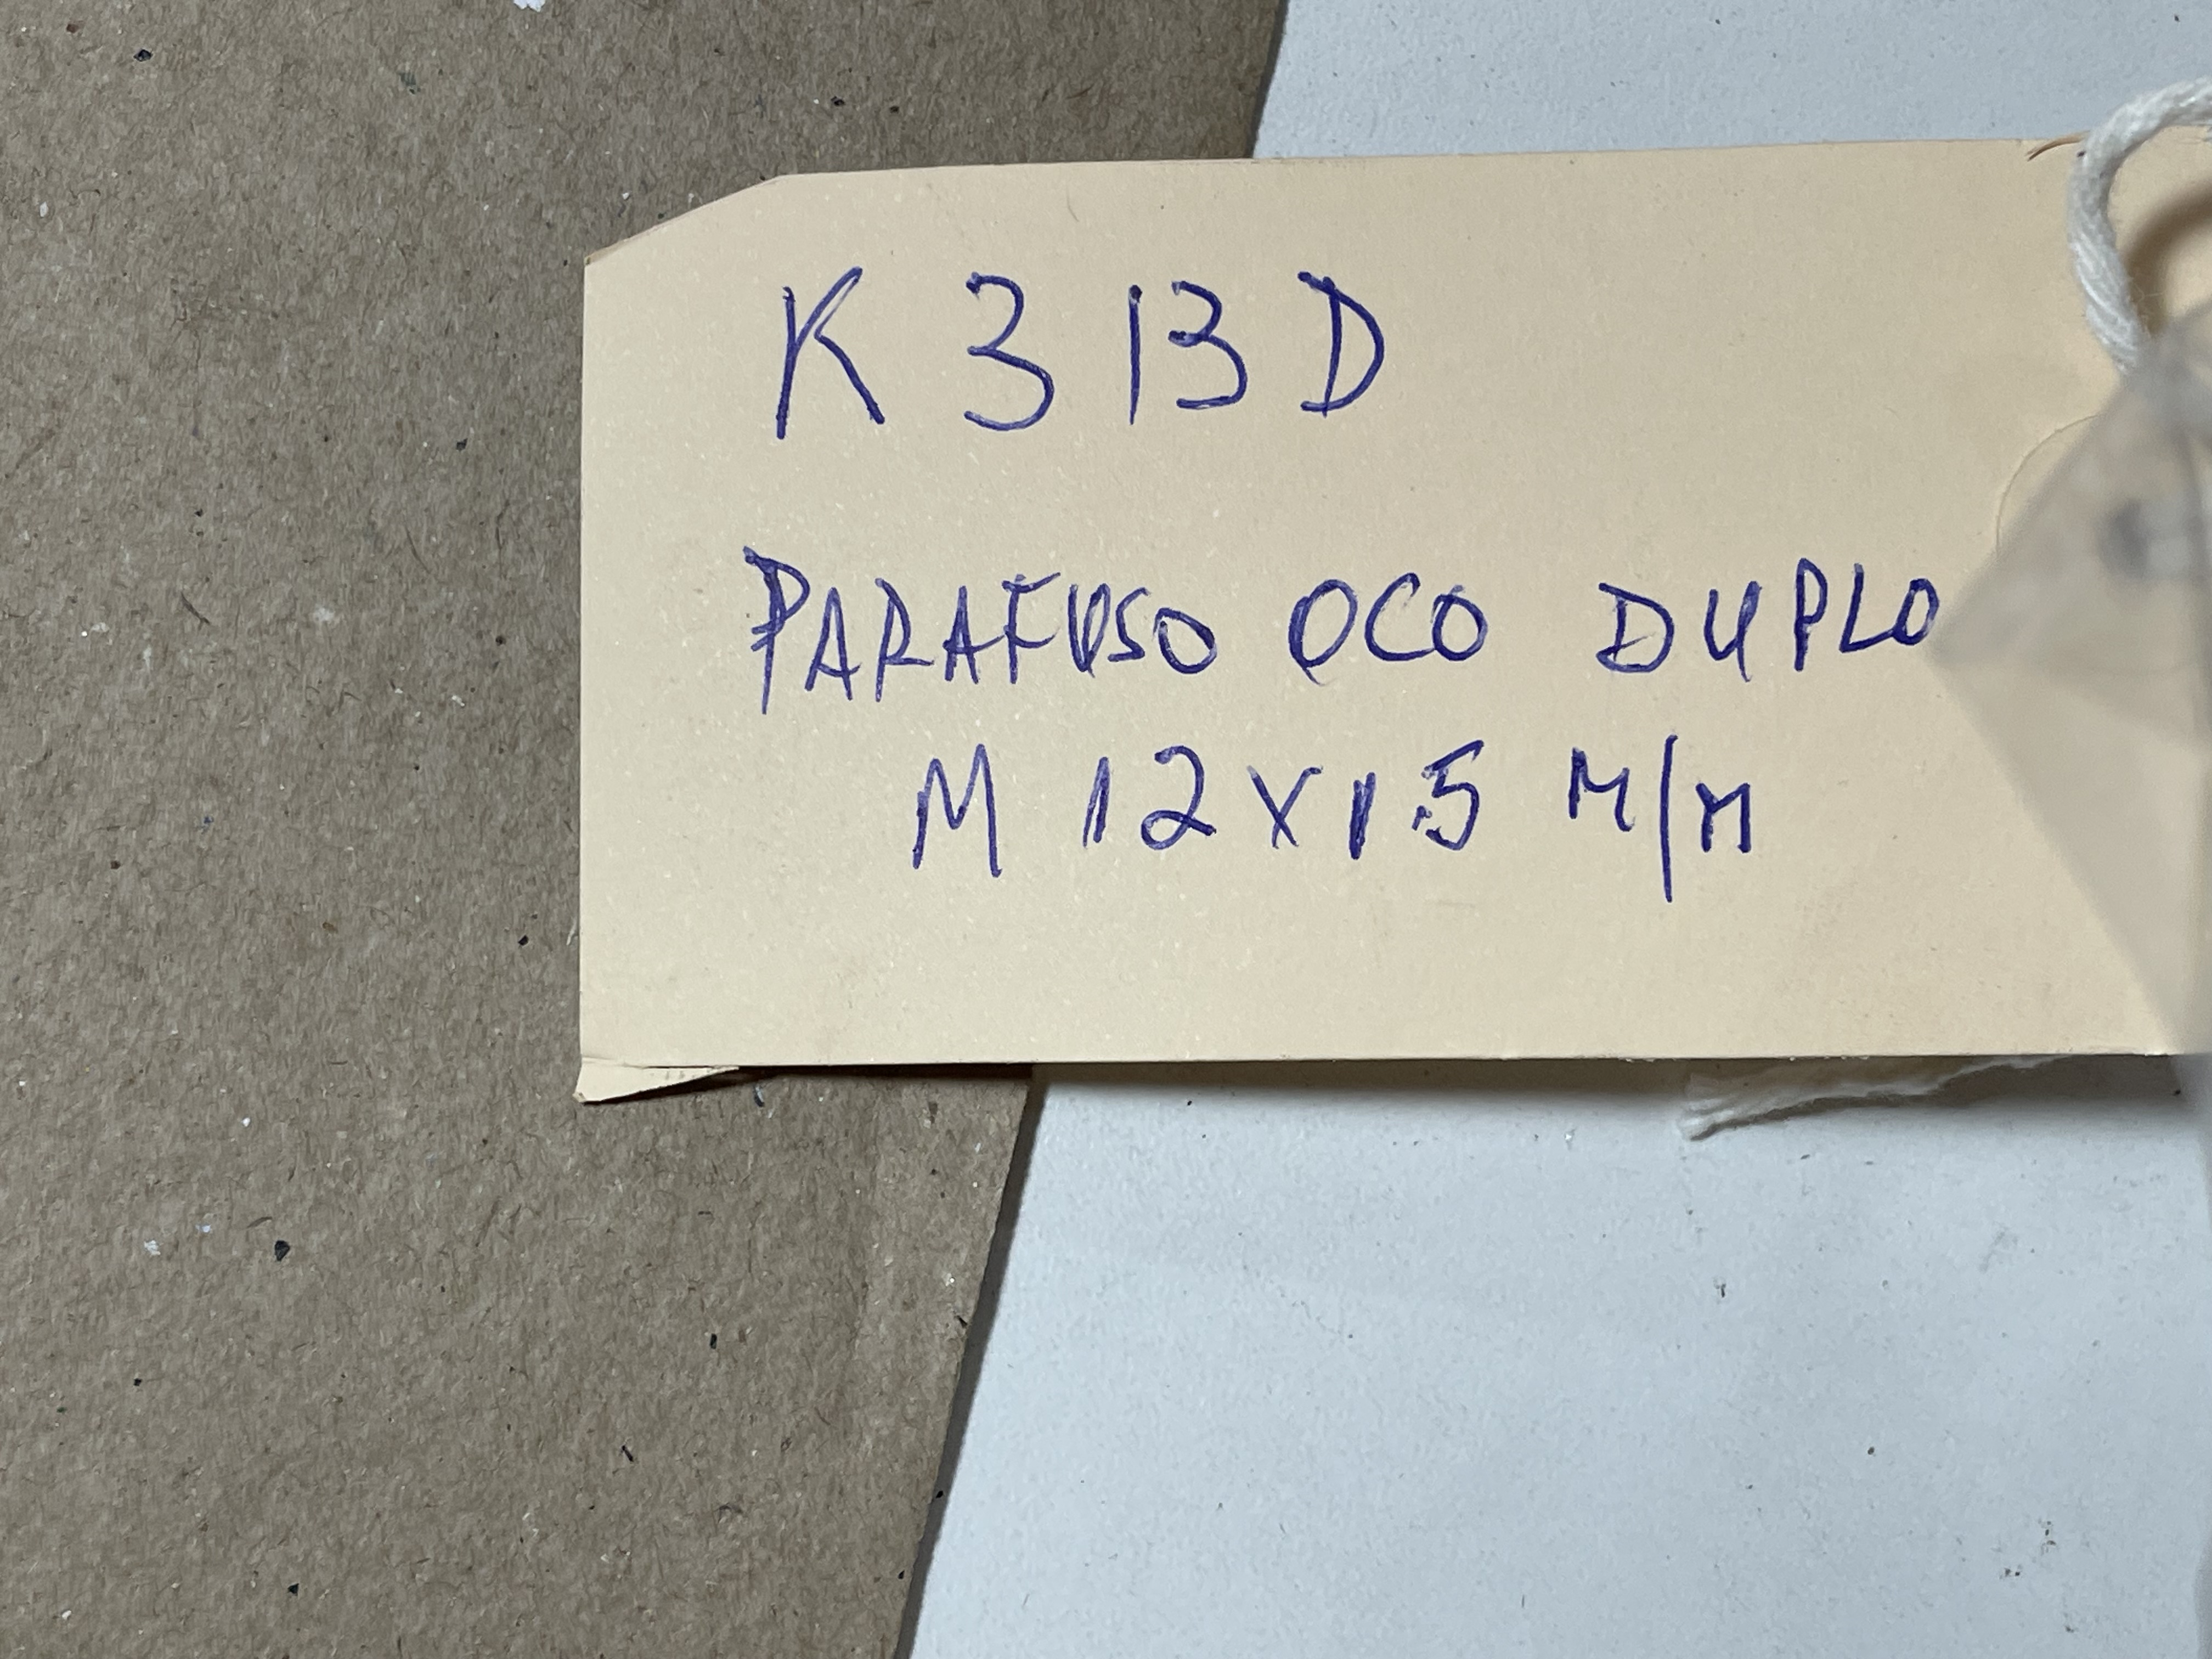 K 3 BD
PARAFUSO OCO DUPLO
M 12 X 1.5 M/M